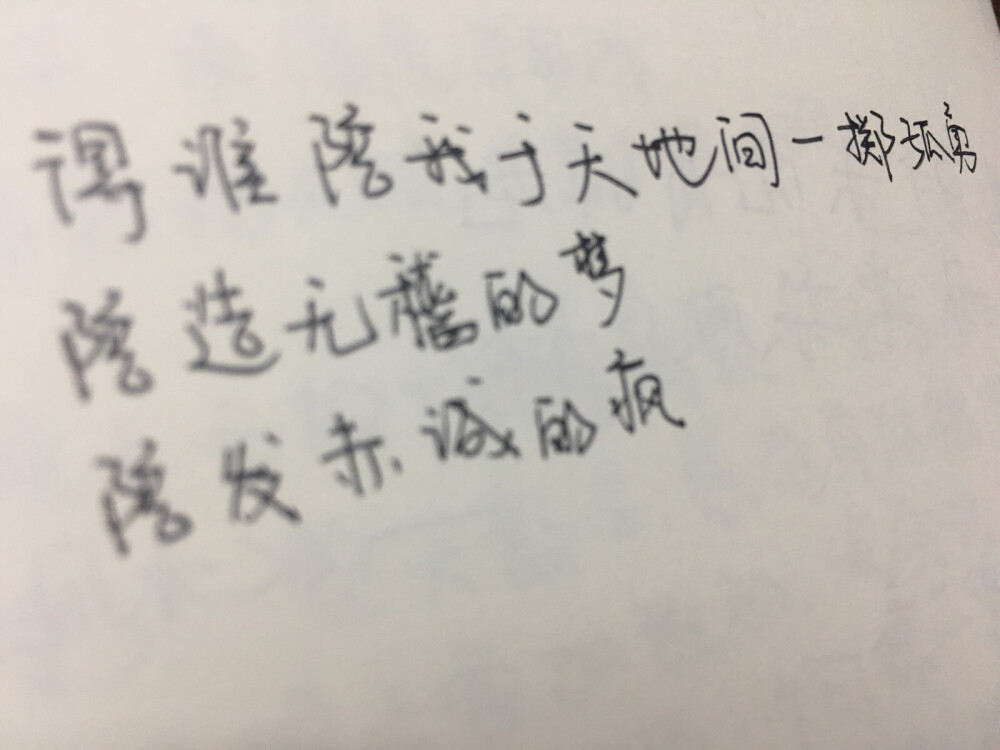 谁陪我于天地间一掷孤勇
陪造无稽的梦
陪发赤诚的疯